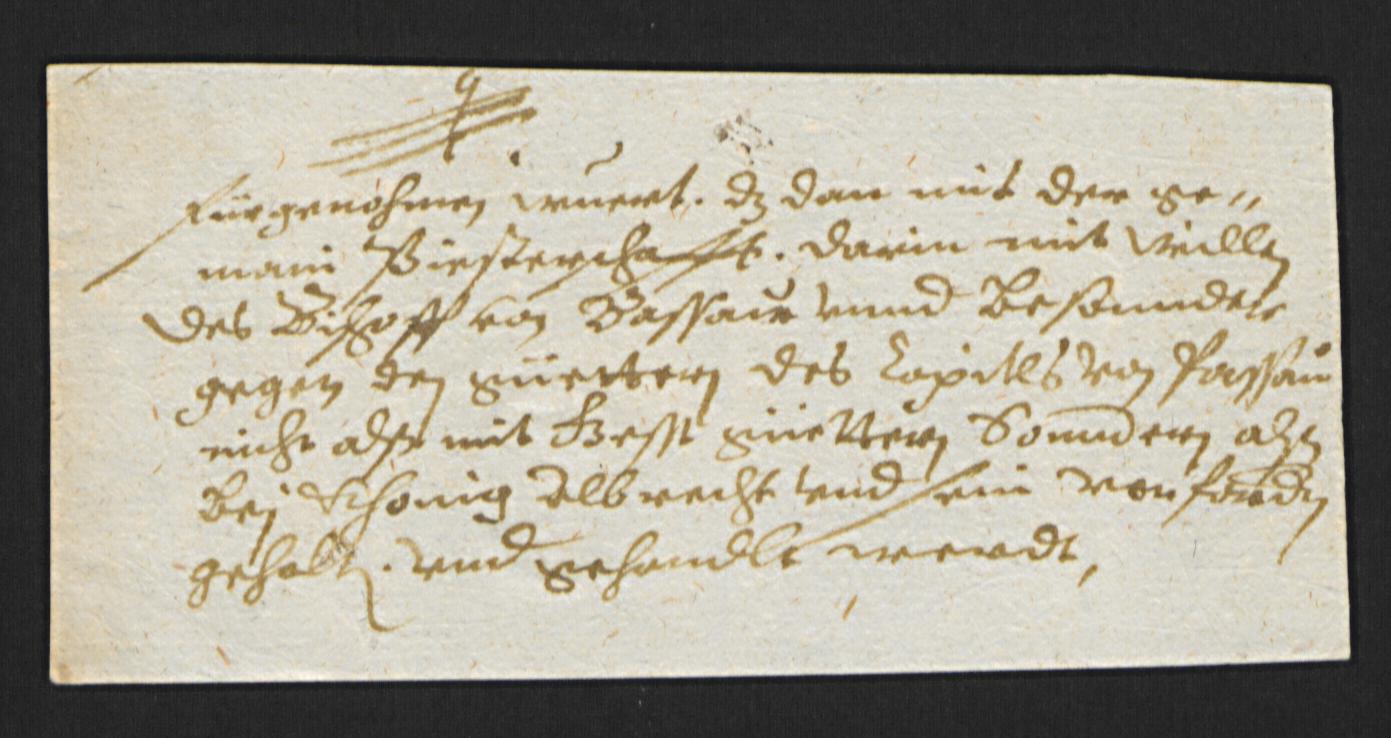 fürgenohmen wuert. dz dan mit der ge„
main Priesterschafft. darin mit willen
des Bischoff von Bassaw vnnd besonnder
gegen den güettern des Capitls von Passau
nicht alß mit güettern Sonndern alß
bej Khönig Albrecht vnd sein vorfordn
gehaltn. vnd gehandlt werdt,